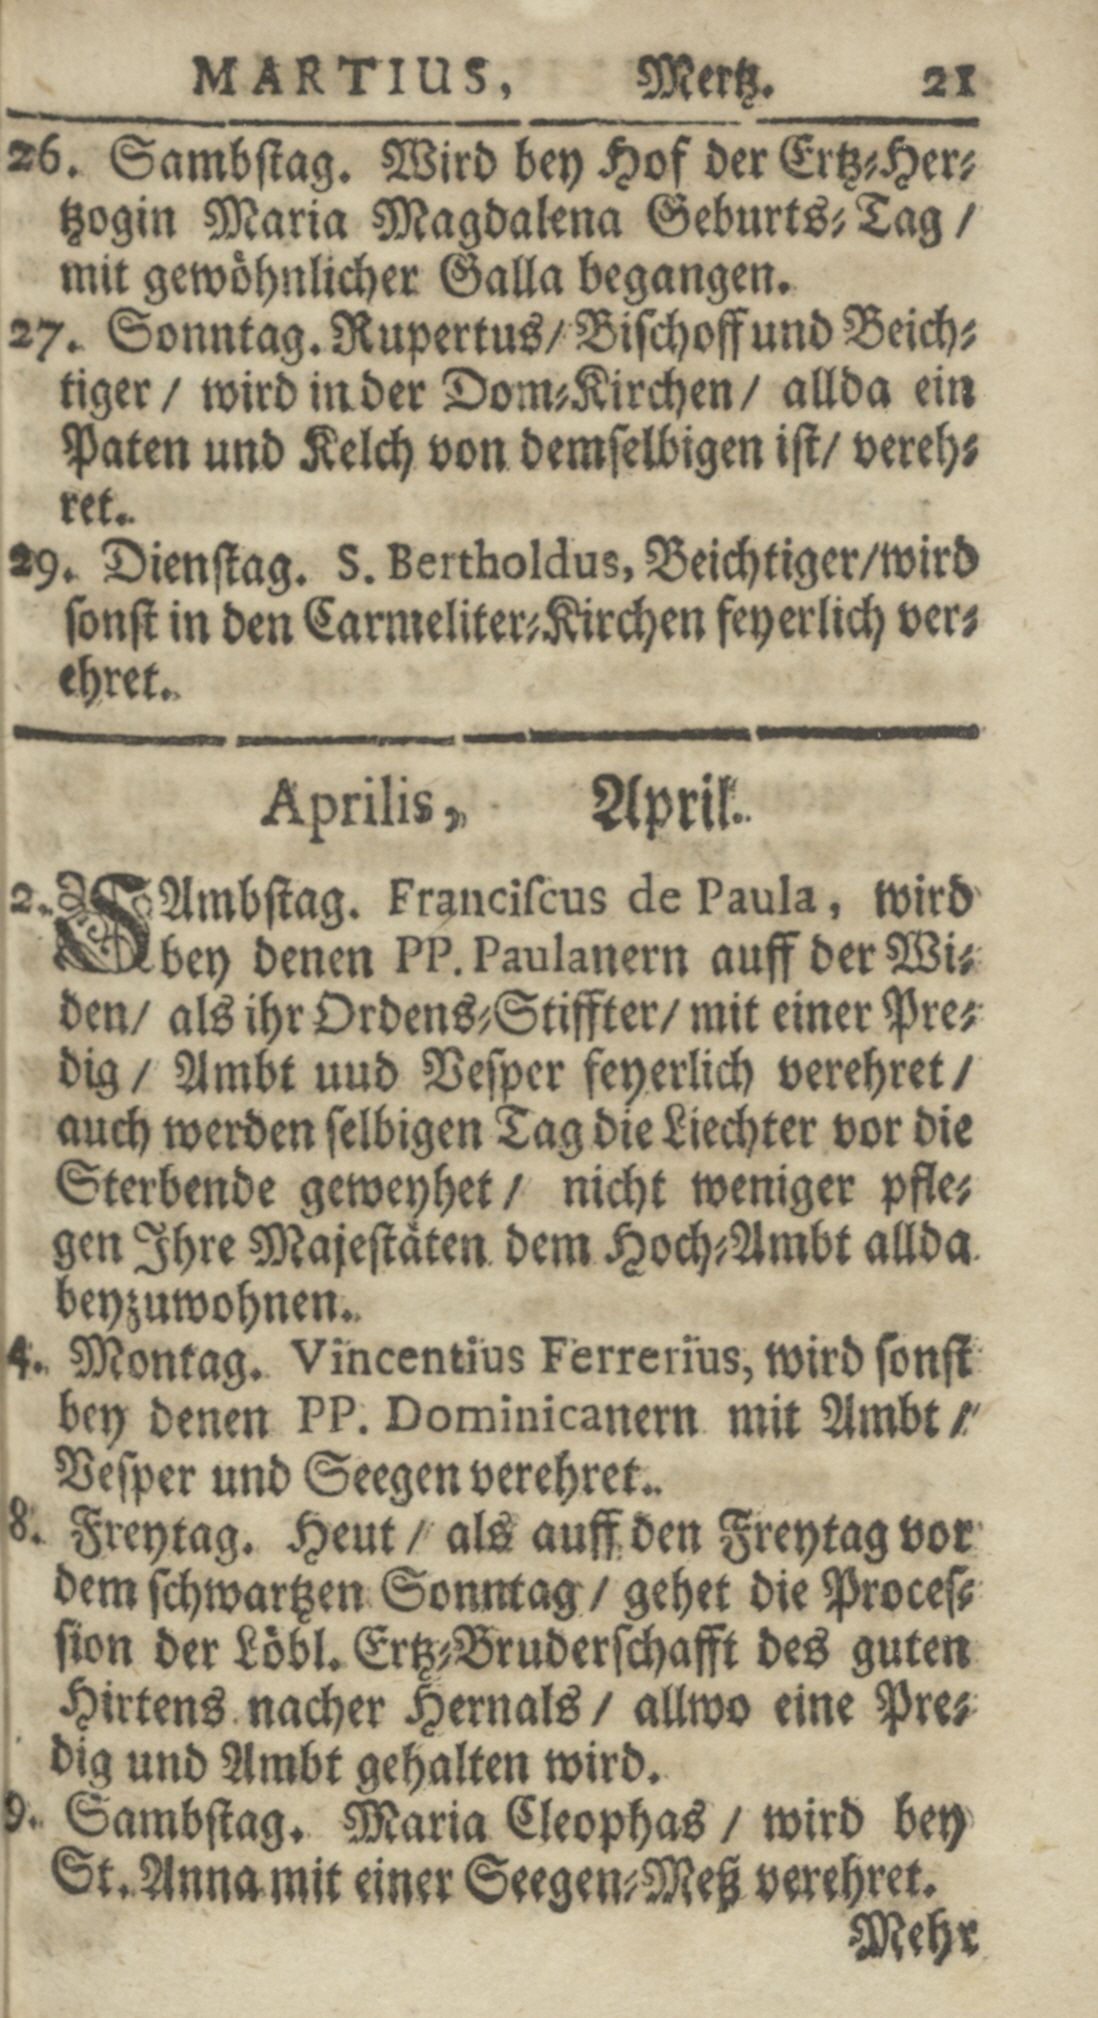 MARTIUS, Mertz. 21
26. Sambstag. Wird bey Hof der Ertz-Her-
tzogin Maria Magdalena Geburts-Tag /
mit gewöhnlicher Galla begangen.
27. Sonntag. Rupertus / Bischoff und Beich-
tiger / wird in der Dom-Kirchen / allda ein
Paten und Kelch von demselbigen ist / vereh-
ret.
29. Dienstag. S. Bertholdus, Beichtiger / wird
sonst in den Carmeliter-Kirchen feyerlich ver-
ehret.
Aprilis, April.
2. SAmbstag. Franciscus de Paula, wird
bey denen PP. Paulanern auff der Wi-
den / als ihr Ordens-Stiffter / mit einer Pre-
dig / Ambt uud Vesper feyerlich verehret /
auch werden selbigen Tag die Liechter vor die
Sterbende geweyhet / nicht weniger pfle-
gen Ihre Majestäten dem Hoch-Ambt allda
beyzuwohnen.
4. Montag. Vincentius Ferrerius, wird sonst
bey denen PP. Dominicanern mit Ambt /
Vesper und Seegen verehret.
8. Freytag. Heut / als auff den Freytag vor
dem schwartzen Sonntag / gehet die Proces-
sion der Löbl. Ertz-Bruderschafft des guten
Hirtens nacher Hernals / allwo eine Pre-
dig und Ambt gehalten wird.
9. Sambstag. Maria Cleophas / wird bey
St. Anna mit einer Seegen-Meß verehret.
Mehr